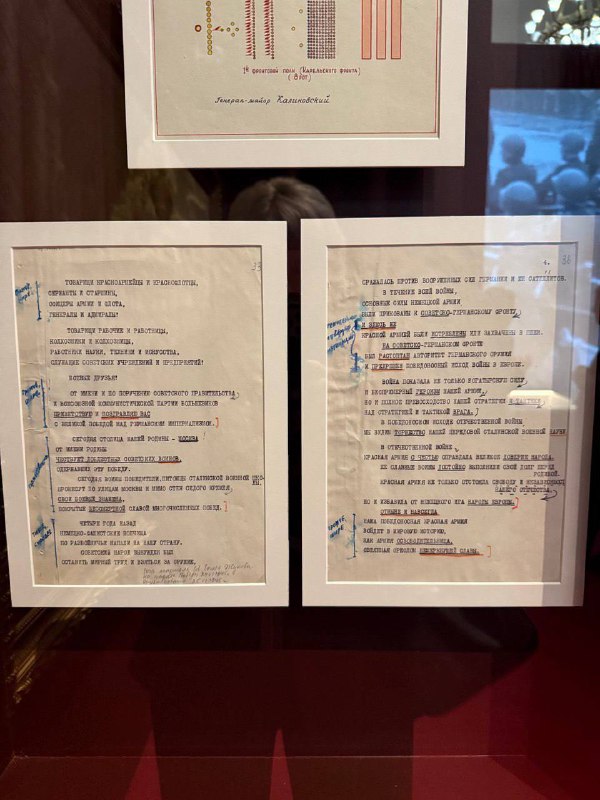 1й фронтовой полк (Карельского фронта)
Генерал-майор Калиновский
33
ТОВАРИЩИ КРАСНОАРМЕЙЦЫ И КРАСНОФЛОТЦЫ,
СЕРЖАНТЫ И СТАРШИНЫ,
ОФИЦЕРЫ АРМИИ И ФЛОТА,
ГЕНЕРАЛЫ И АДМИРАЛЫ!
ТОВАРИЩИ РАБОЧИЕ И РАБОТНИЦЫ,
КОЛХОЗНИКИ И КОЛХОЗНИЦЫ,
РАБОТНИКИ НАУКИ, ТЕХНИКИ И ИСКУССТВА,
СЛУЖАЩИЕ СОВЕТСКИХ УЧРЕЖДЕНИЙ И ПРЕДПРИЯТИЙ!
БОЕВЫЕ ДРУЗЬЯ!
ОТ ИМЕНИ И ПО ПОРУЧЕНИЮ СОВЕТСКОГО ПРАВИТЕЛЬСТВА
И ВСЕСОЮЗНОЙ КОММУНИСТИЧЕСКОЙ ПАРТИИ БОЛЬШЕВИКОВ
ПРИВЕТСТВУЮ И ПОЗДРАВЛЯЮ ВАС
С ВЕЛИКОЙ ПОБЕДОЙ НАД ГЕРМАНСКИМ ИМПЕРИАЛИЗМОМ.
СЕГОДНЯ СТОЛИЦА НАШЕЙ РОДИНЫ - МОСКВА
ОТ ИМЕНИ РОДИНЫ
ЧЕСТВУЕТ ДОБЛЕСТНЫХ СОВЕТСКИХ ВОИНОВ,
ОДЕРЖАВШИХ ЭТУ ПОБЕДУ.
СЕГОДНЯ ВОИНЫ ПОБЕДИТЕЛИ, ПИТОМЦЫ СТАЛИНСКОЙ ВОЕННОЙ
ПРОНЕСУТ ПО УЛИЦАМ МОСКВЫ И МИМО СТЕН СЕДОГО КРЕМЛЯ
СВОИ БОЕВЫЕ ЗНАМЕНА,
ПОКРЫТЫЕ БЕССМЕРТНОЙ СЛАВОЙ МНОГОЧИСЛЕННЫХ ПОБЕД.
ЧЕТЫРЕ ГОДА НАЗАД
НЕМЕЦКО-ФАШИСТСКИЕ ПОЛЧИЩА
ПО РАЗБОЙНИЧЬИ НАПАЛИ НА НАШУ СТРАНУ.
СОВЕТСКИЙ НАРОД ВЫНУЖДЕН БЫЛ
ОСТАВИТЬ МИРНЫЙ ТРУД И ВЗЯТЬСЯ ЗА ОРУЖИЕ,
4. 36
СРАЖАЛАСЬ ПРОТИВ ВООРУЖЕННЫХ СИЛ ГЕРМАНИИ И ЕЕ САТЕЛЛИТОВ.
В ТЕЧЕНИЕ ВСЕЙ ВОЙНЫ,
ОСНОВНЫЕ СИЛЫ НЕМЕЦКОЙ АРМИИ
БЫЛИ ПРИКОВАНЫ К СОВЕТСКО-ГЕРМАНСКОМУ ФРОНТУ
И ЗДЕСЬ ЖЕ
КРАСНОЙ АРМИЕЙ БЫЛИ ИСТРЕБЛЕНЫ ИЛИ ЗАХВАЧЕНЫ В ПЛЕН.
НА СОВЕТСКО-ГЕРМАНСКОМ ФРОНТЕ
БЫЛ РАСТОПТАН АВТОРИТЕТ ГЕРМАНСКОГО ОРУЖИЯ
И ПРЕДРЕШЕН ПОБЕДОНОСНЫЙ ИСХОД ВОЙНЫ В ЕВРОПЕ.
ВОЙНА ПОКАЗАЛА НЕ ТОЛЬКО БОГАТЫРСКУЮ СИЛУ
И БЕСПРИМЕРНЫЙ ГЕРОИЗМ НАШЕЙ АРМИИ,
НО И ПОЛНОЕ ПРЕВОСХОДСТВО НАШЕЙ СТРАТЕГИИ И ТАКТИКИ
НАД СТРАТЕГИЕЙ И ТАКТИКОЙ ВРАГА.
В ПОБЕДОНОСНОМ ИСХОДЕ ОТЕЧЕСТВЕННОЙ ВОЙНЫ
МЫ ВИДИМ ТОРЖЕСТВО НАШЕЙ ПЕРЕДОВОЙ СТАЛИНСКОЙ ВОЕННОЙ НАУКИ
В ОТЕЧЕСТВЕННОЙ ВОЙНЕ
КРАСНАЯ АРМИЯ С ЧЕСТЬЮ ОПРАВДАЛА ВЕЛИКОЕ ДОВЕРИЕ НАРОДА.
ЕЕ СЛАВНЫЕ ВОИНЫ ДОСТОЙНО ВЫПОЛНИЛИ СВОЙ ДОЛГ ПЕРЕД
РОДИНОЙ.
КРАСНАЯ АРМИЯ НЕ ТОЛЬКО ОТСТОЯЛА СВОБОДУ И НЕЗАВИСИМОСТЬ
НАШЕГО ОТЕЧЕСТВА,
НО И ИЗБАВИЛА ОТ НЕМЕЦКОГО ИГА НАРОДЫ ЕВРОПЫ.
ОТНЫНЕ И НАВСЕГДА
НАША ПОБЕДОНОСНАЯ КРАСНАЯ АРМИЯ
ВОЙДЕТ В МИРОВУЮ ИСТОРИЮ,
КАК АРМИЯ ОСВОБОДИТЕЛЬНИЦА,
ОВЕЯННАЯ ОРЕОЛОМ НЕМЕРКНУЩЕЙ СЛАВЫ.